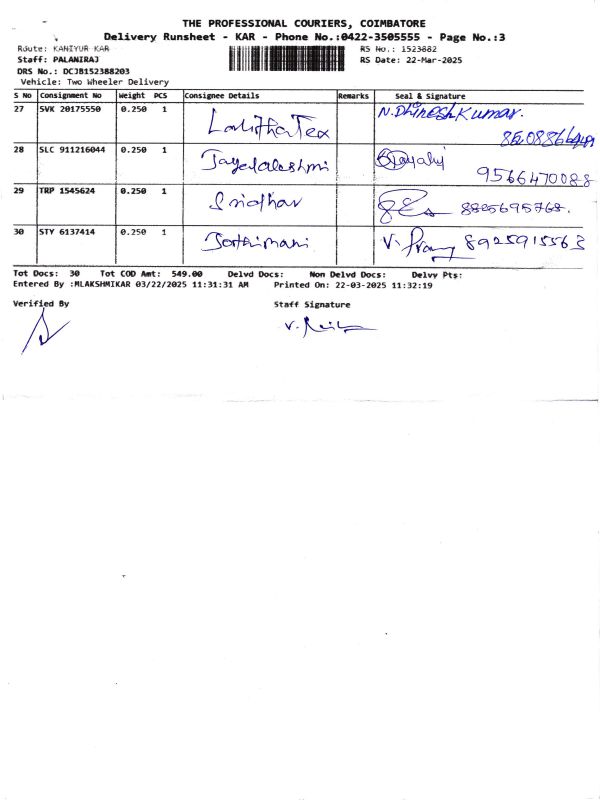 THE PROFESSIONAL COURIERS, COIMBATORE
Delivery Runsheet - KAR - Phone No.:0422-3505555 - Page No.:3
Route: KANIYUR KAR RS No.: 1523882
Staff: PALANIRAJ RS Date: 22-Mar-2025
DRS No.: DCJB152388203
Vehicle: Two Wheeler Delivery
S No Consignment No Weight PCS Consignee Details Remarks Seal & Signature
27 SVK 20175550 0.250 1 Lalitha Tex N. Dhinesh Kumar.
28 SLC 911216044 0.250 1 Jayalakshmi
9566470088
29 TRP 1545624 0.250 1 Sridhar 8825695768.
30 STY 6137414 0.250 1 Jothimani V. 8925915563
Tot Docs: 30 Tot COD Amt: 549.00 Delvd Docs: Non Delvd Docs: Delvy Pts:
Entered By :MLAKSHMIKAR 03/22/2025 11:31:31 AM Printed On: 22-03-2025 11:32:19
Verified By Staff Signature